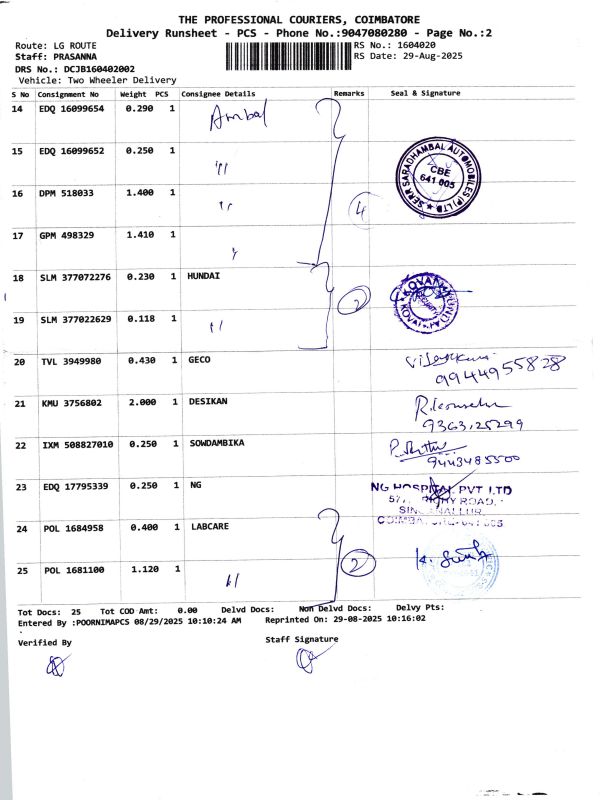 THE PROFESSIONAL COURIERS, COIMBATORE
Delivery Runsheet - PCS - Phone No.:9047080280 - Page No.:2
Route: LG ROUTE RS No.: 1604020
Staff: PRASANNA RS Date: 29-Aug-2025
DRS No.: DCJB160402002
Vehicle: Two Wheeler Delivery
S No Consignment No Weight PCS Consignee Details Remarks Seal & Signature
14 EDQ 16099654 0.290 1 Ambal
15 EDQ 16099652 0.250 1 "
SERR SARADHAMBAL AUTOMOBILES (P) LTD
CBE
641 005
16 DPM 518033 1.400 1 " 4
17 GPM 498329 1.410 1 "
18 SLM 377072276 0.230 1 HUNDAI 2
19 SLM 377022629 0.118 1 "
20 TVL 3949980 0.430 1 GECO
9944955828
21 KMU 3756802 2.000 1 DESIKAN
22 IXM 508827010 0.250 1 SOWDAMBIKA
9443485500
23 EDQ 17795339 0.250 1 NG
NG HOSPITAL PVT LTD
24 POL 1684958 0.400 1 LABCARE 2
25 POL 1681100 1.120 1 "
Tot Docs: 25 Tot COD Amt: 0.00 Delvd Docs: Non Delvd Docs: Delvy Pts:
Entered By :POORNIMAPCS 08/29/2025 10:10:24 AM Reprinted On: 29-08-2025 10:16:02
Verified By Staff Signature